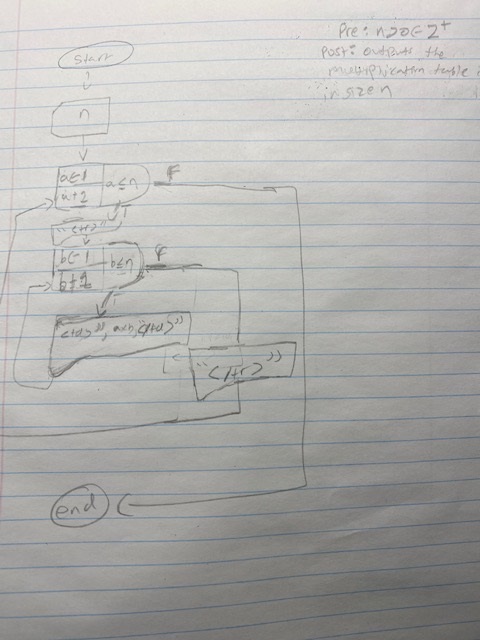 Pre: n>0 ∈ Z+
Post: outputs the
multiplication table
in size n
Start
n
a←1
a≤n
F
a+2
T
"<tr>"
b←1
b≤n
F
T
"<td>", a×b, "</td>"
"</tr>"
end